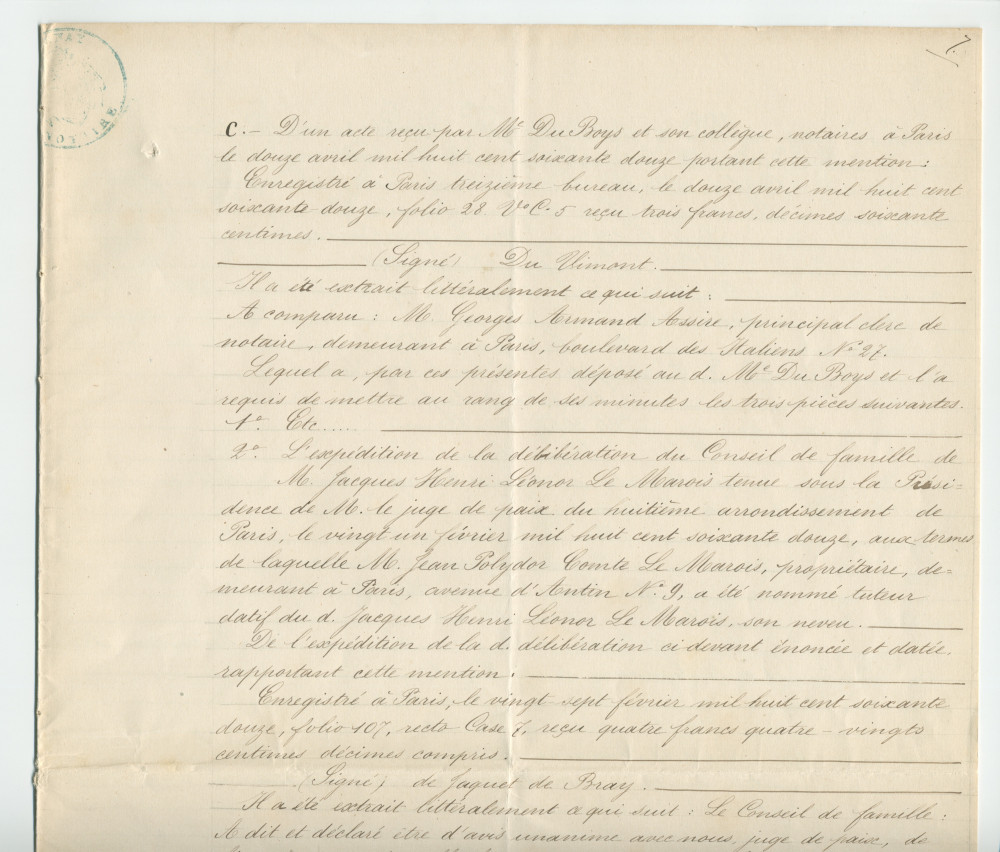 7.
NOTAIRE
C. — D'un acte reçu par Me Du Boys et son collègue, notaires à Paris
le douze avril mil huit cent soixante douze portant cette mention :
Enregistré à Paris treizième bureau, le douze avril mil huit cent
soixante douze, folio 28 Vo C. 5 reçu trois francs, décimes soixante
centimes.
(Signé) Du Vimont.
Il a été extrait littéralement ce qui suit :
A comparu : M. Georges Armand Assire, principal clerc de
notaire, demeurant à Paris, boulevard des Italiens No 27.
Lequel a, par ces présentes déposé au d. Me Du Boys et l'a
requis de mettre au rang de ses minutes les trois pièces suivantes.
1o. Etc.....
2o. L'expédition de la délibération du Conseil de famille de
M. Jacques Henri Léonor Le Marois tenue sous la Prési-
dence de M. le juge de paix du huitième arrondissement de
Paris, le vingt un février mil huit cent soixante douze, aux termes
de laquelle M. Jean Polydor Comte Le Marois, propriétaire, de-
meurant à Paris, avenue d'Antin No. 9, a été nommé tuteur
datif du d. Jacques Henri Léonor Le Marois, son neveu.
De l'expédition de la d. délibération ci devant énoncée et datée,
rapportant cette mention.
Enregistré à Paris, le vingt-sept février mil huit cent soixante
douze, folio 107, recto Case 7, reçu quatre francs quatre-vingts
centimes décimes compris.
(Signé) de Jaquet de Bray.
Il a été extrait littéralement ce qui suit : Le Conseil de famille :
A dit et déclaré être d'avis unanime avec nous, juge de paix, de